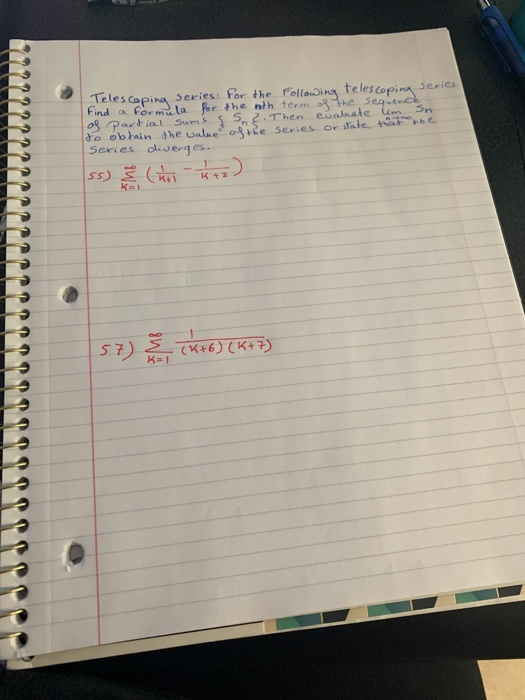 Telescoping series: For the Following telescoping series
Find a Formula for the nth term of the sequence
of partial sums { Sn }. Then evaluate lim n→∞ Sn
to obtain the value of the series or state that the
series diverges.
55) ∞ Σ K=1 ( 1/K+1 - 1/K+2 )
57) ∞ Σ K=1 1/(K+6)(K+7)